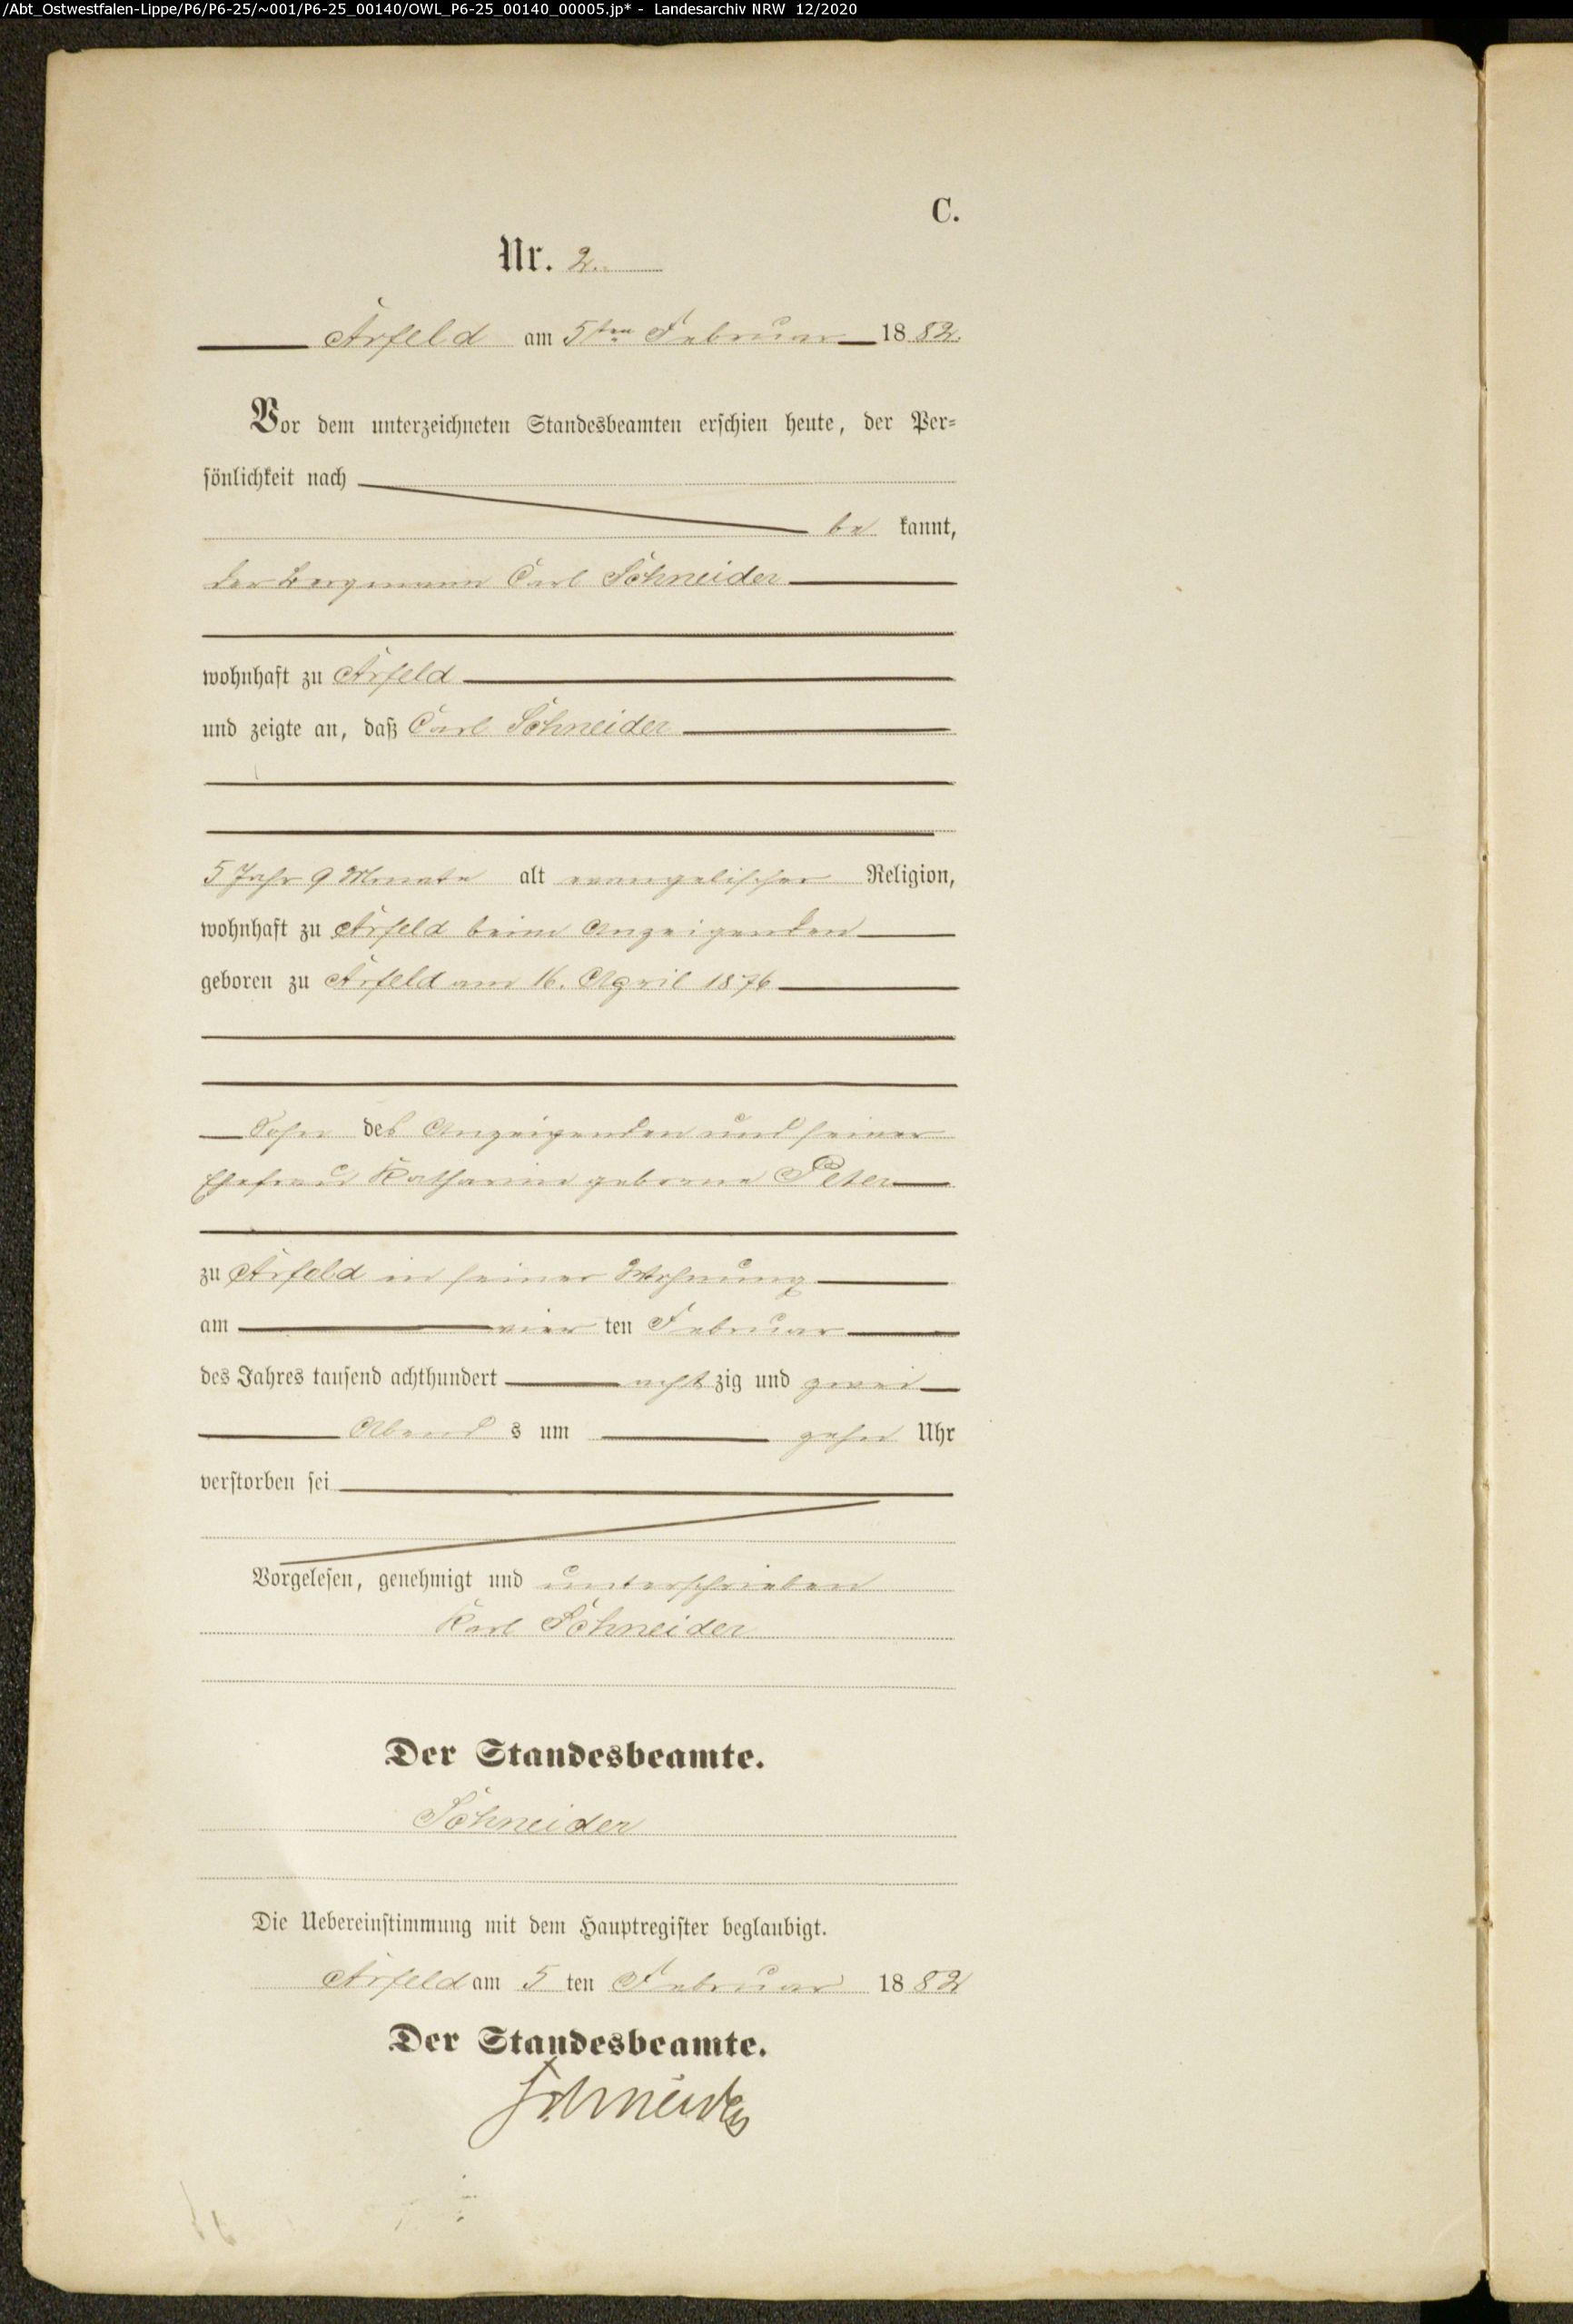 /Abt_Ostwestfalen-Lippe/P6/P6-25/~001/P6-25_00140/OWL_P6-25_00140_00005.jp* - Landesarchiv NRW 12/2020
C.
Nr. 2.
Arfeld am 5ten Februar 1882.
Vor dem unterzeichneten Standesbeamten erschien heute, der Per-
sönlichkeit nach
be kannt,
der Bergmann Carl Schneider
wohnhaft zu Arfeld
und zeigte an, daß Carl Schneider
5 Jahr 9 Monate alt evangelischer Religion,
wohnhaft zu Arfeld beim Anzeigenden
geboren zu Arfeld am 16. April 1876
Sohn des Anzeigenden und seiner
Ehefrau Katharine geborne Peter
zu Arfeld in seiner Wohnung
am vier ten Februar
des Jahres tausend achthundert acht zig und zwei
Abend s um zehn Uhr
verstorben sei
Vorgelesen, genehmigt und unterschrieben
Karl Schneider
Der Standesbeamte.
Schneider
Die Uebereinstimmung mit dem Hauptregister beglaubigt.
Arfeld am 5 ten Februar 1882
Der Standesbeamte.
Schneider